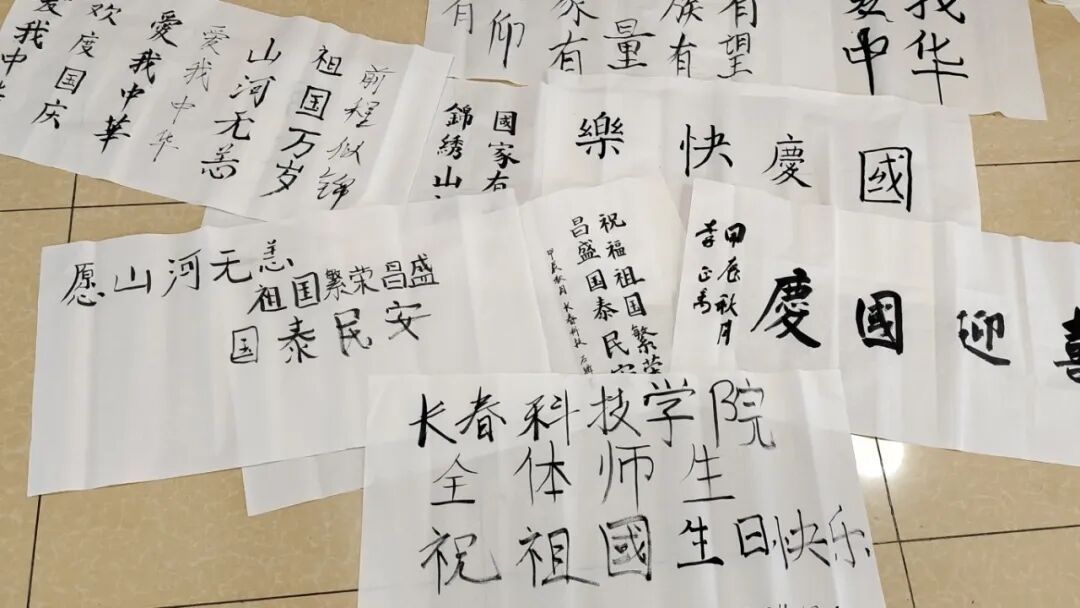 我中
欢度国庆
愛我中華
爱我中华
山河无恙
祖国万岁
前程似錦
有
仰
家有
量
族有
有望
爱中
我华
國家有
錦綉山
樂快慶國
愿山河无恙
祖国繁荣昌盛
国泰民安
祝福祖国繁荣
昌盛国泰民安
甲辰秋月
甲辰秋月
李正
慶國迎喜
长春科技学院
全体师生
祝祖國生日快乐